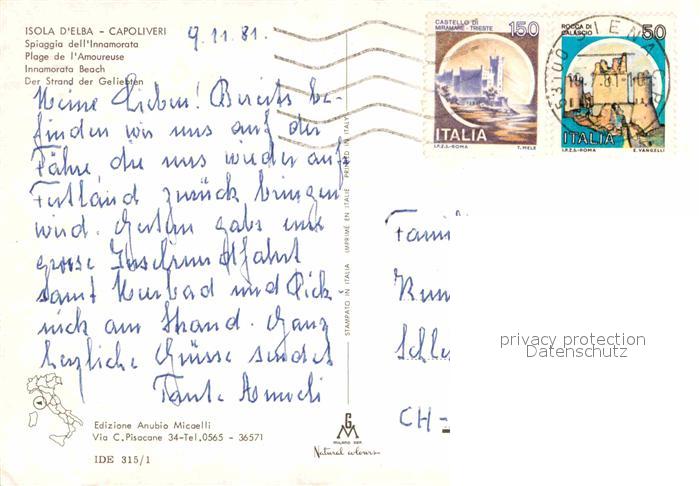 ISOLA D'ELBA - CAPOLIVERI
Spiaggia dell'Innamorata
Plage de l'Amoureuse
Innamorata Beach
Der Strand der Geliebten
9.11.81.
Meine Lieben! Bereits be-
finden wir uns auf der
Fähre, die uns wieder auf
Festland zurück bringen
wird. Gestern gabs eine
grosse Inselrundfahrt
samt Meerbad und Pick
nick am Strand. Ganz
herzliche Grüsse sendet
Tante
Edizione Anubio Micaelli
Via C. Pisacane 34-Tel. 0565 - 36571
IDE 315/1
STAMPATO IN ITALIA IMPRIMÉ EN ITALIE PRINTED IN ITALY
GM
MILANO
Natural colours
CASTELLO DI
MIRAMARE - TRIESTE
150
ITALIA
I.P.Z.S. - ROMA T. MELE
ROCCA DI
CALASCIO
50
ITALIA
I.P.Z.S. - ROMA E. VANGELLI
53100 SIENA
Famil
CH-
privacy protection
Datenschutz